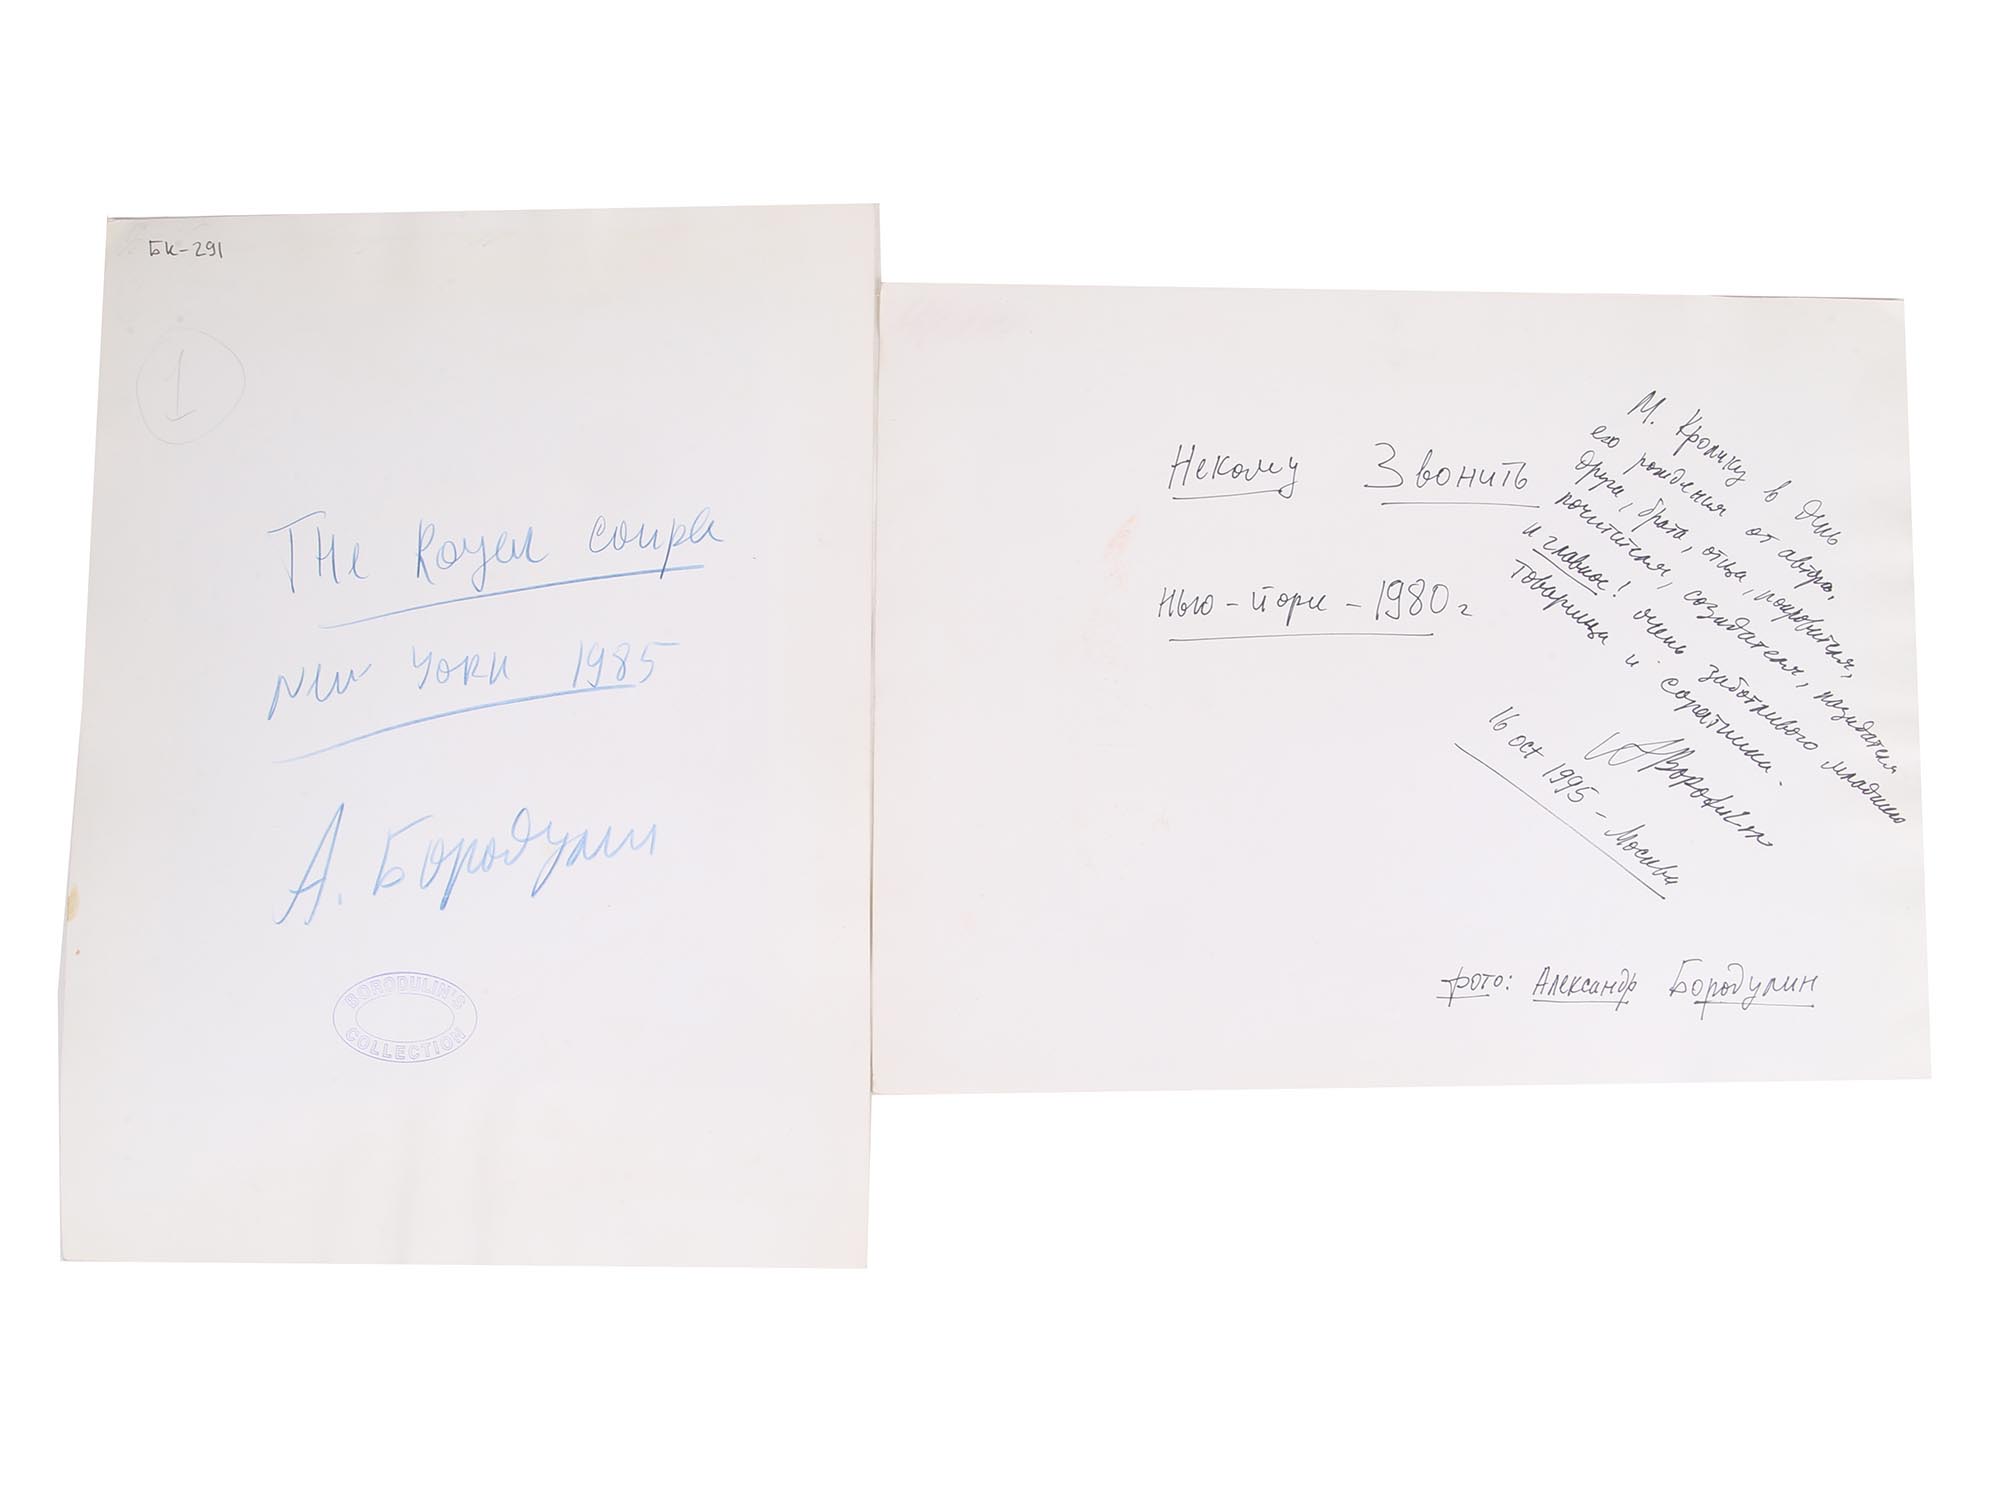 БК-291
1
THe Royal couple
New York 1985
А. Бородулин
BORODULIN'S
COLLECTION
Некому Звонить
Нью-Йорк - 1980 г
М. Кролику в день
его рождения от автора,
друга, брата, отца, покровителя,
почитателя, создателя,
и главное! очень заботливого младшего
товарища и соратника.
ABorodulin
16 oct 1995 - Москва
фото: Александр Бородулин